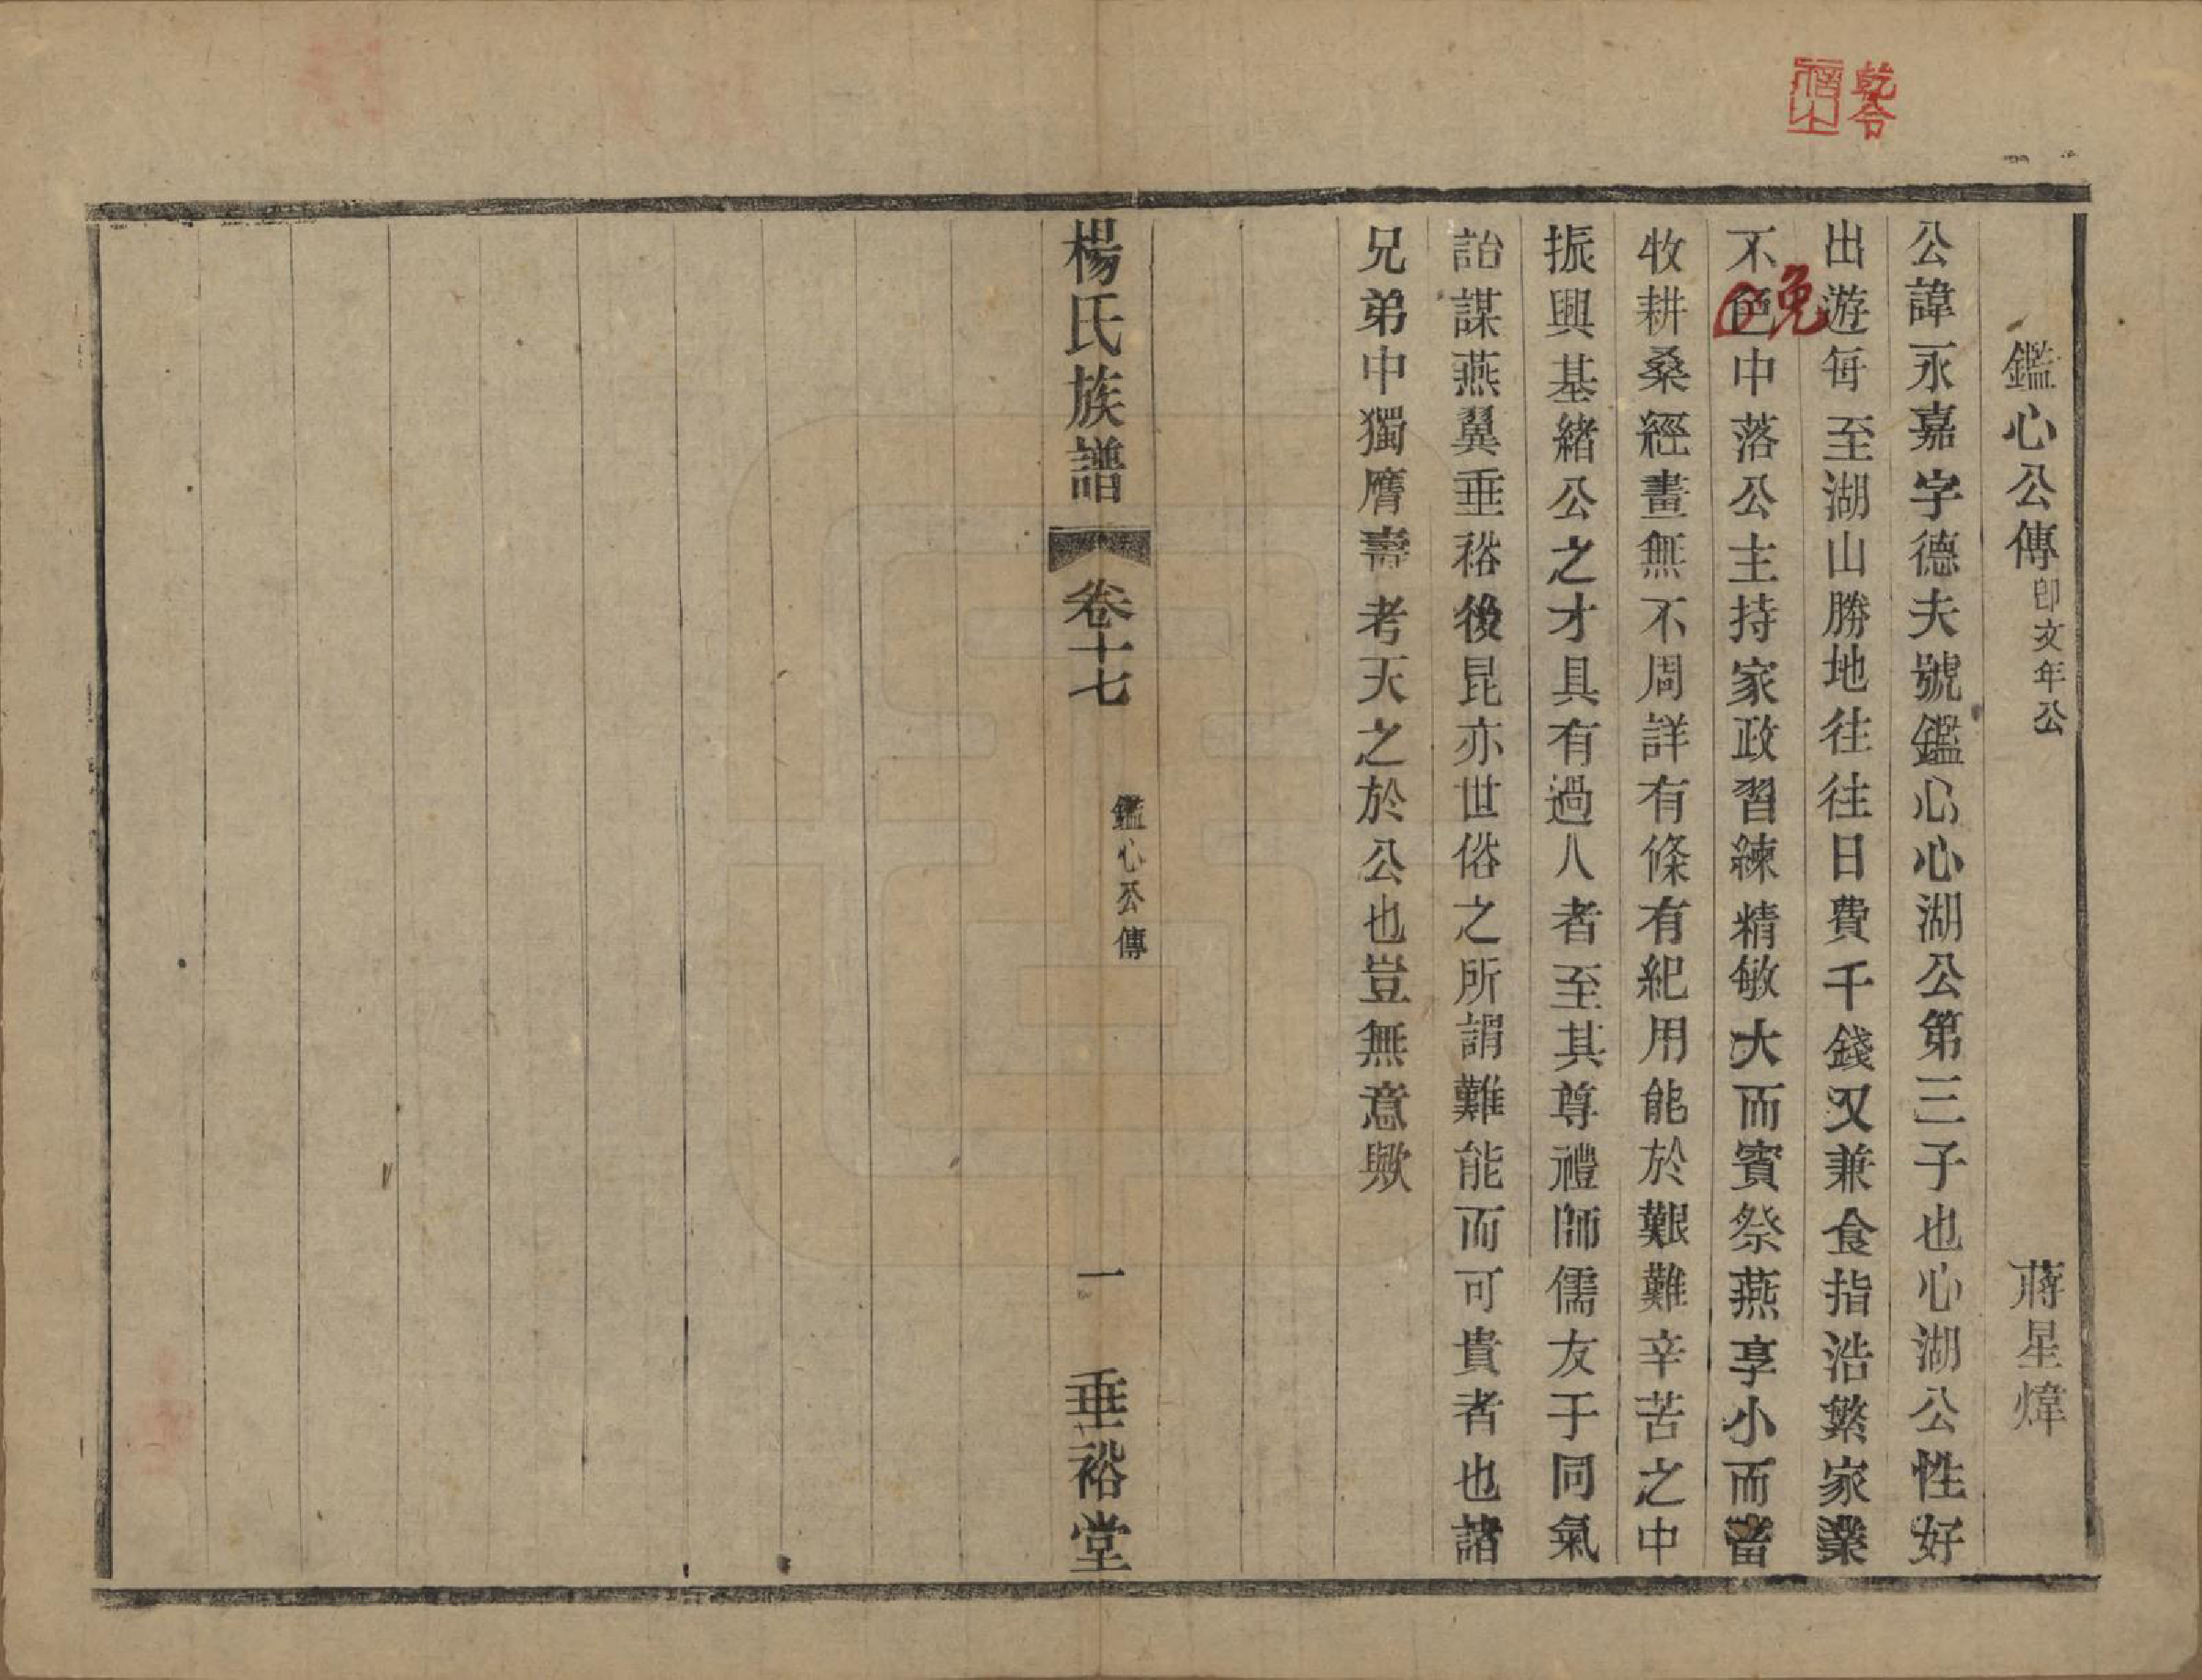 鑑心公傳卽文年公　蔣星煒
公諱永嘉字德夫號鑑心心湖公第三子也心湖公性好
出遊每至湖山勝地往往日費千錢又兼食指浩繁家業
不色中落公主持家政習練精敏大而賓祭燕享小而畜
免
牧耕桑經畫無不周詳有條有紀用能於艱難辛苦之中
振興基緒公之才具有過人者至其尊禮師儒友于同氣
詒謀燕翼垂裕後昆亦世俗之所謂難能而可貴者也諸
兄弟中獨膺壽考天之於公也豈無意歟
楊氏族譜　卷十七　鑑心公傳　一　垂裕堂